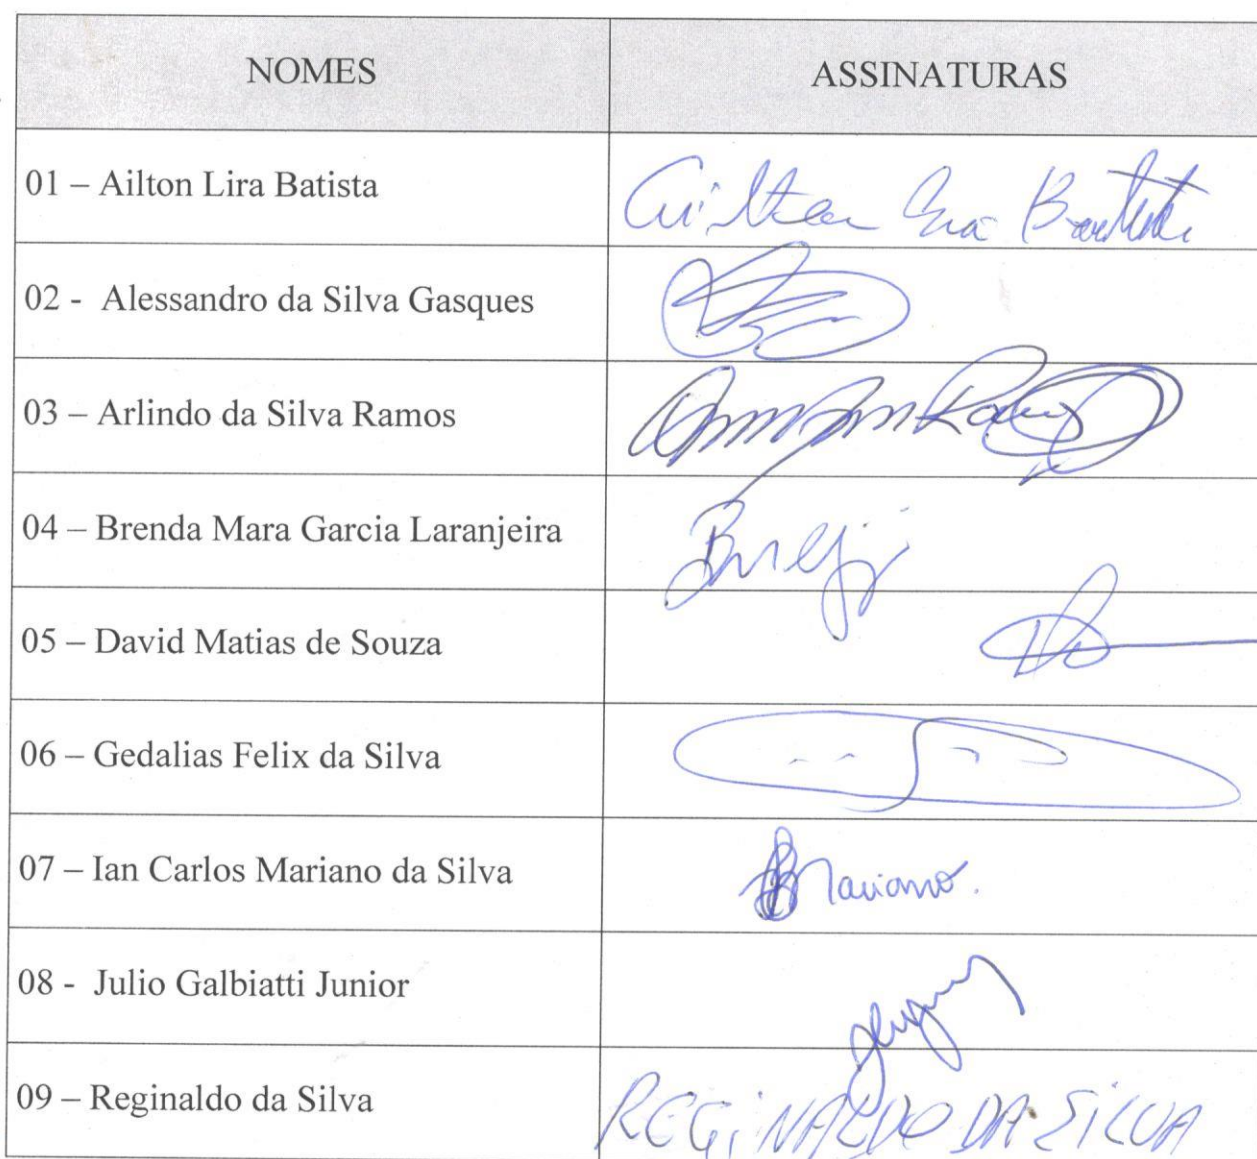 NOMES ASSINATURAS
01 – Ailton Lira Batista Ailton Lira Batista
02 - Alessandro da Silva Gasques
03 – Arlindo da Silva Ramos
04 – Brenda Mara Garcia Laranjeira
05 – David Matias de Souza
06 – Gedalias Felix da Silva
07 – Ian Carlos Mariano da Silva Mariano.
08 - Julio Galbiatti Junior
09 – Reginaldo da Silva REGINALDO DA SILVA